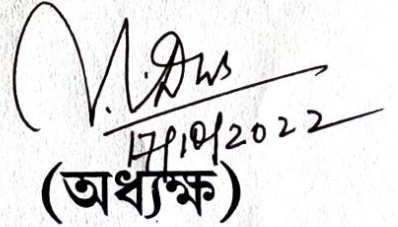 17/10/2022
(অধ্যক্ষ)